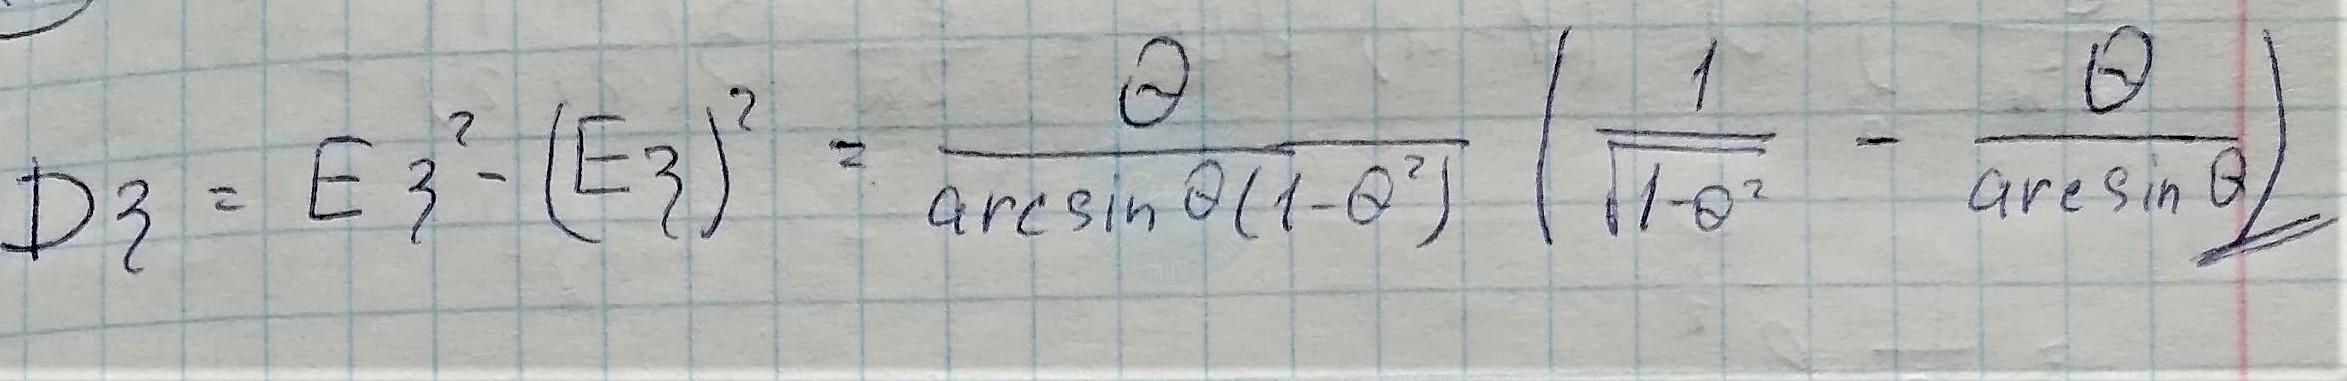 Dξ = Eξ² - (Eξ)² = θ / (arcsin θ(1-θ²)) (1 / √(1-θ²) - θ / arcsin θ)